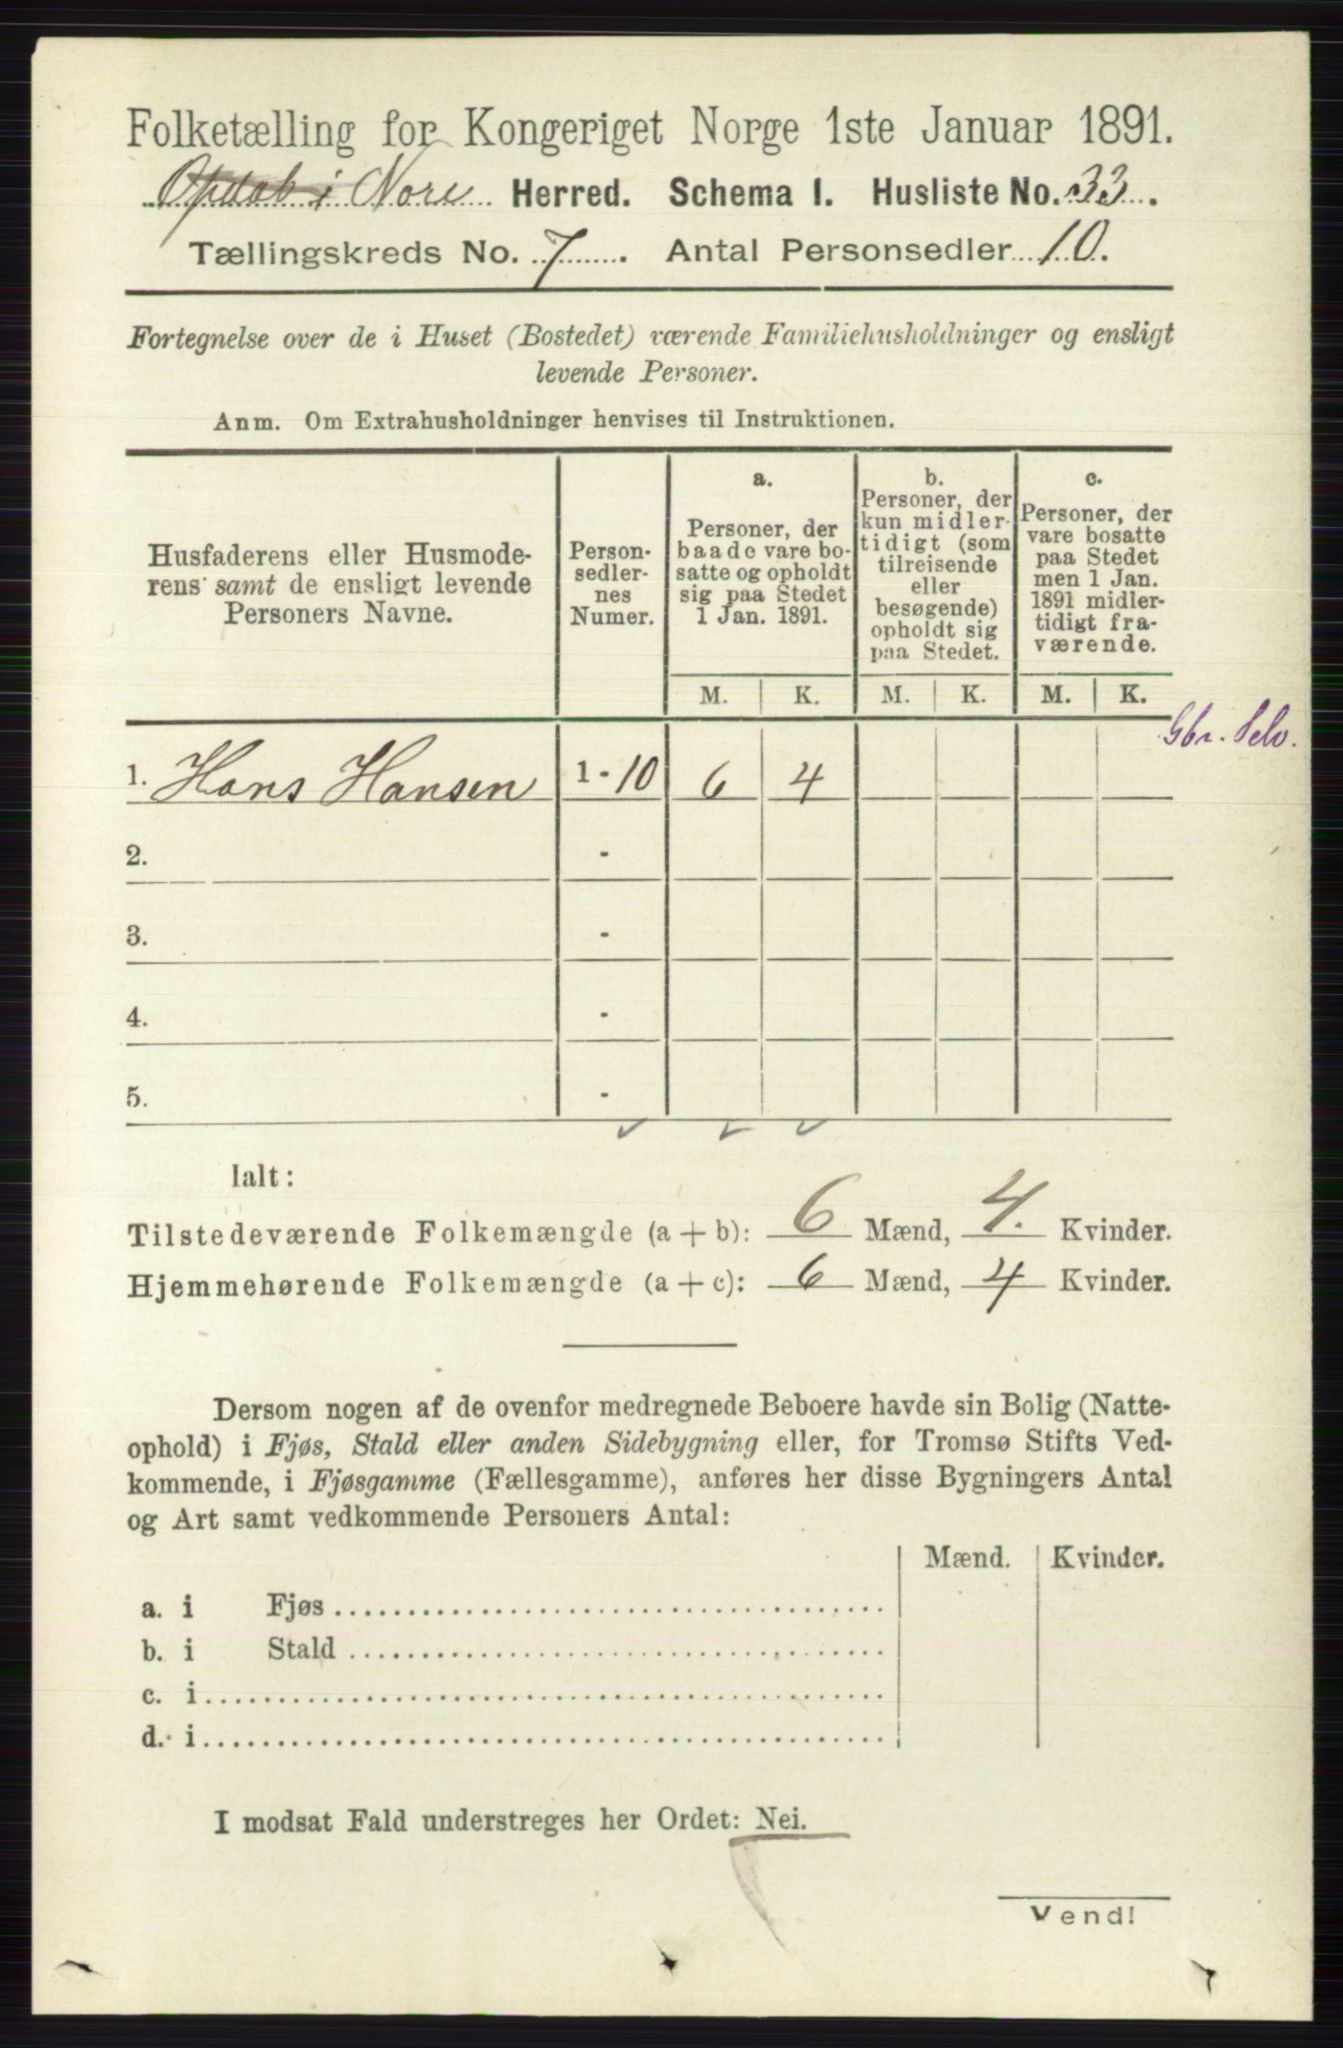 Folketælling for Kongeriget Norge 1ste Januar 1891.
Opdal i Nore Herred. Schema I. Husliste No. 33.
Tællingskreds No. 7. Antal Personsedler 10.
Fortegnelse over de i Huset (Bostedet) værende Familiehusholdninger og ensligt
levende Personer.
Anm. Om Extrahusholdninger henvises til Instruktionen.
Husfaderens eller Husmode-
rens samt de ensligt levende
Personers Navne.
Person-
sedler-
nes
Numer.
a.
Personer, der
baade vare bo-
satte og opholdt
sig paa Stedet
1 Jan. 1891.
b.
Personer, der
kun midler-
tidigt (som
tilreisende
eller
besøgende)
opholdt sig
paa Stedet.
c.
Personer, der
vare bosatte
paa Stedet
men 1 Jan.
1891 midler-
tidigt fra-
værende.
M. K. M. K. M. K.
Gbr. Selv.
1. Hans Hansen 1 - 10 6 4
2. -
3. -
4. -
5. -
Ialt:
Tilstedeværende Folkemængde (a + b): 6 Mænd, 4. Kvinder.
Hjemmehørende Folkemængde (a + c): 6 Mænd, 4 Kvinder.
Dersom nogen af de ovenfor medregnede Beboere havde sin Bolig (Natte-
ophold) i Fjøs, Stald eller anden Sidebygning eller, for Tromsø Stifts Ved-
kommende, i Fjøsgamme (Fællesgamme), anføres her disse Bygningers Antal
og Art samt vedkommende Personers Antal:
Mænd. Kvinder.
a. i Fjøs
b. i Stald
c. i
d. i
I modsat Fald understreges her Ordet: Nei.
Vend!